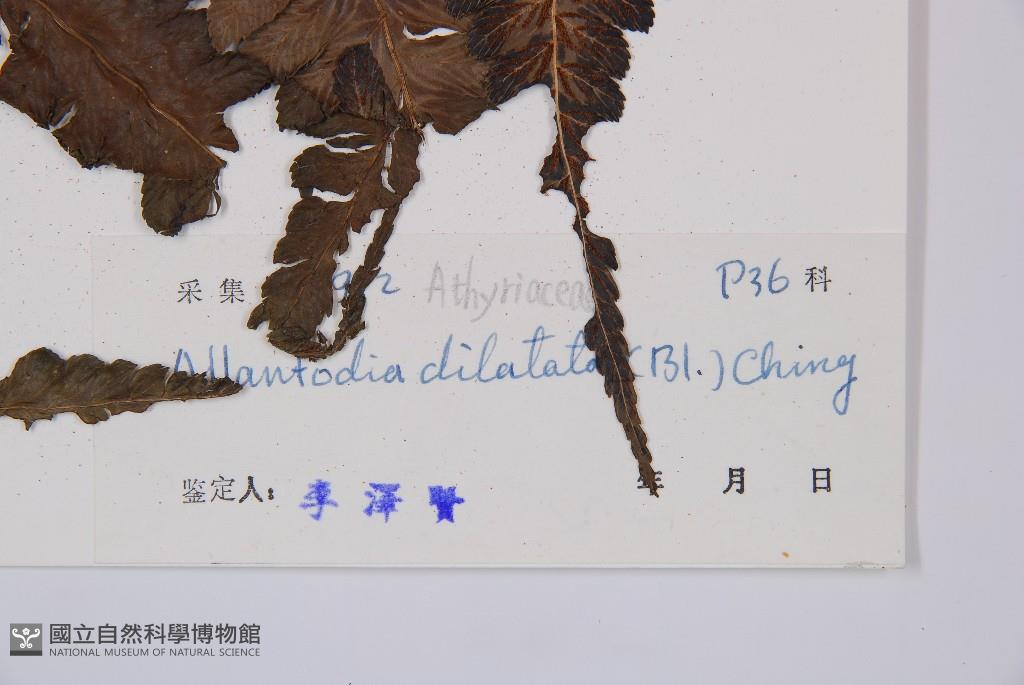 采集 Athyriaceae P36 科
Allantodia dilatata (Bl.) Ching
鉴定人: 李泽賢 年 月 日
國立自然科學博物館
NATIONAL MUSEUM OF NATURAL SCIENCE